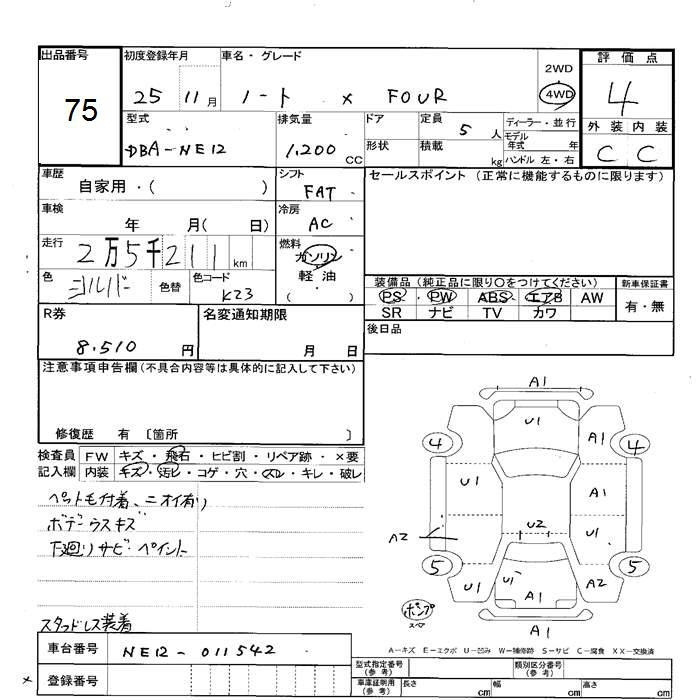 出品番号 初度登録年月 車名・グレード 2WD 評価点
75 25年 11月 ノート × FOUR 4WD 4
型式 排気量 ドア 定員 5人 ディーラー・並行 外装 内装
DBA-NE12 1,200cc 形状 積載 kg モデル年式 年 C C
ハンドル 左・右
車歴 自家用・( ) シフト FAT セールスポイント (正常に機能するものに限ります)
車検 年 月( 日) 冷房 AC
走行 2万5千211km 燃料 ガソリン
色 シルバー 色替 色コード K23 軽・油 ( )
装備品 (純正品に限り○をつけてください) 新車保証書
PS PW ABS エアB AW 有・無
SR ナビ TV カワ
R券 8.510円 名変通知期限 月 日 後日品
注意事項申告欄(不具合内容等は具体的に記入して下さい)
修復歴 有 〔箇所 〕
検査員 FW キズ・飛石・ヒビ割・リペア跡・×要
記入欄 内装 キズ・汚レ・コゲ・穴・スレ・キレ・破レ
ペット毛付着、ニオイ有り
ボデーウスキズ
下廻りサビ・ペイント
スタッドレス装着
A1
U1
4 A1 4
U1 A1
A2 U2 U1
5 5
U1 U1 A2
A1
ポンプ
スペア
A1
A-キズ E-エクボ U-凹み W-補修跡 S-サビ C-腐食 XX-交換済
車台番号 NE12-011542
型式指定番号(参考) 類別区分番号(参考)
× 登録番号
車庫証明用(参考) 長さ cm 幅 cm 高さ cm